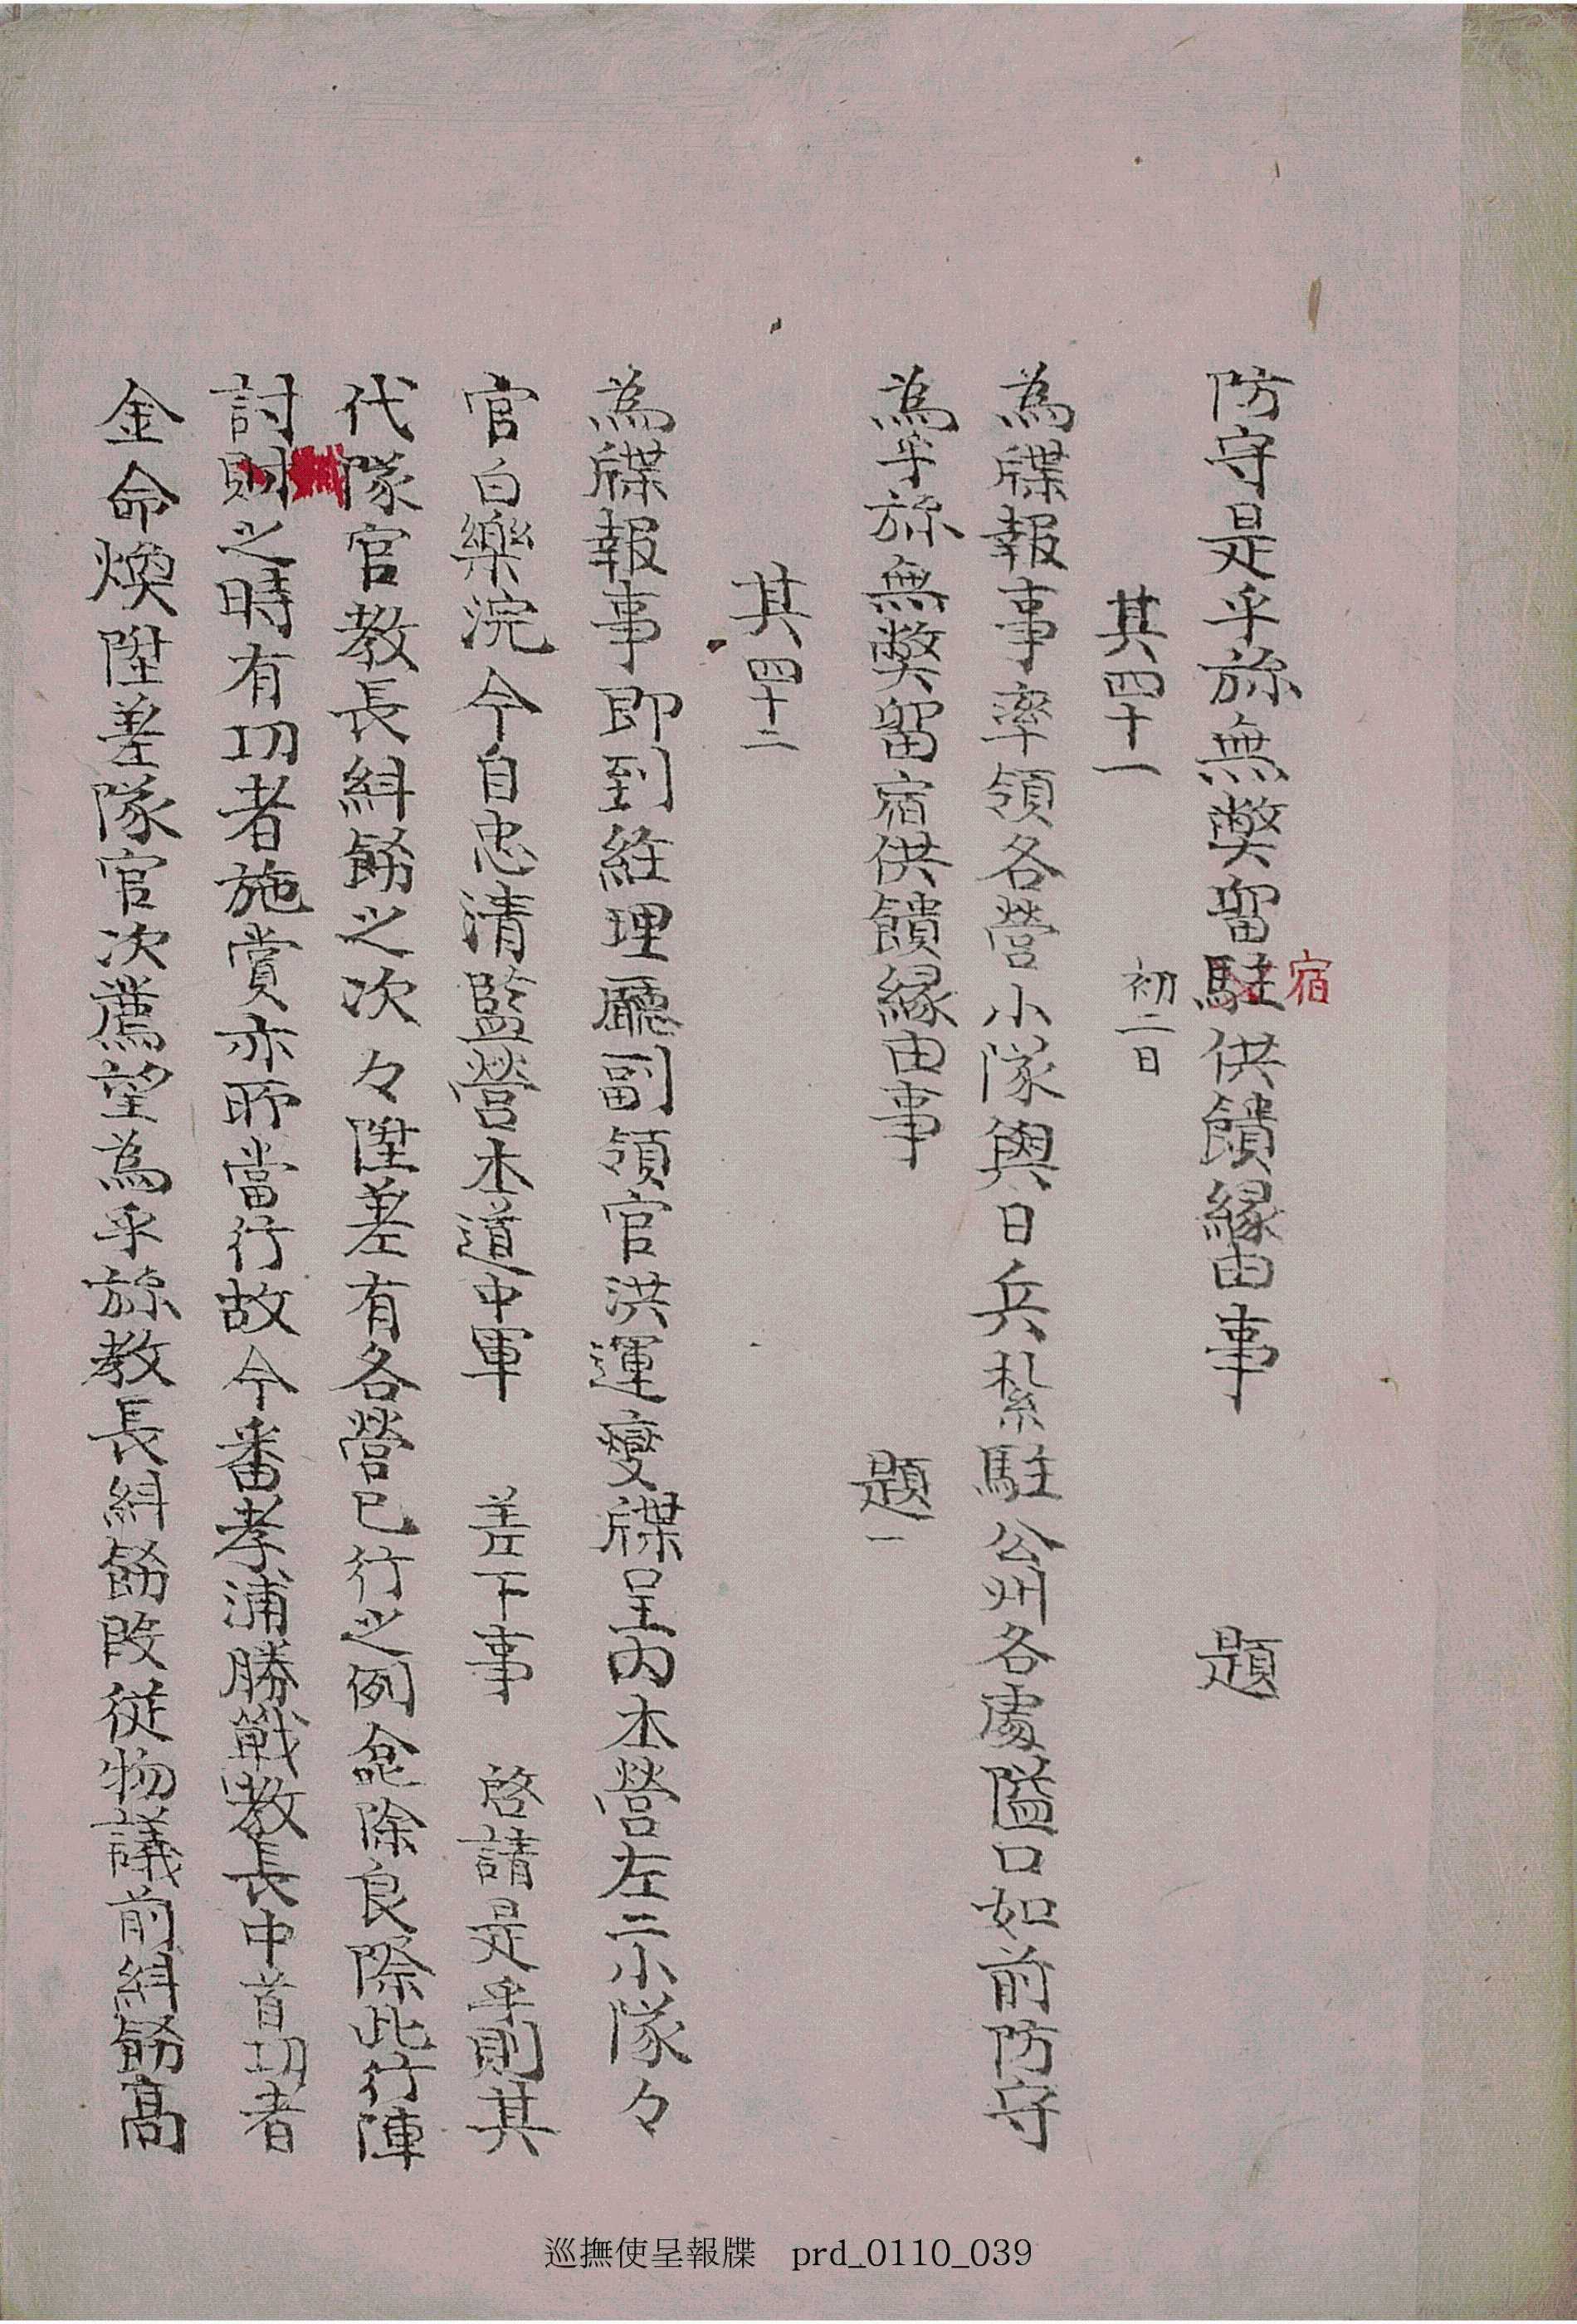 防守是乎旀無獘留駐供饋縁由事 題
宿
其四十一 初二日
為牒報事率領各營小隊與日兵紮駐公州各處隘口如前防守
為乎旀無獘留宿供饋縁由事 題一
其四十二
為牒報事即到経理廳副領官洪運燮牒呈內本營左二小隊々
官白樂浣今自忠清監營本道中軍 差下事 啓請是乎則其
代隊官教長糾飭之次次々陞差有各營已行之例兺除良際此行陣
討財之時有功者施賞亦所當行故今番孝浦勝戰教長中首功者
金命煥陞差隊官次薦望為乎旀教長糾飭段從物議前糾飭高
巡撫使呈報牒 prd_0110_039